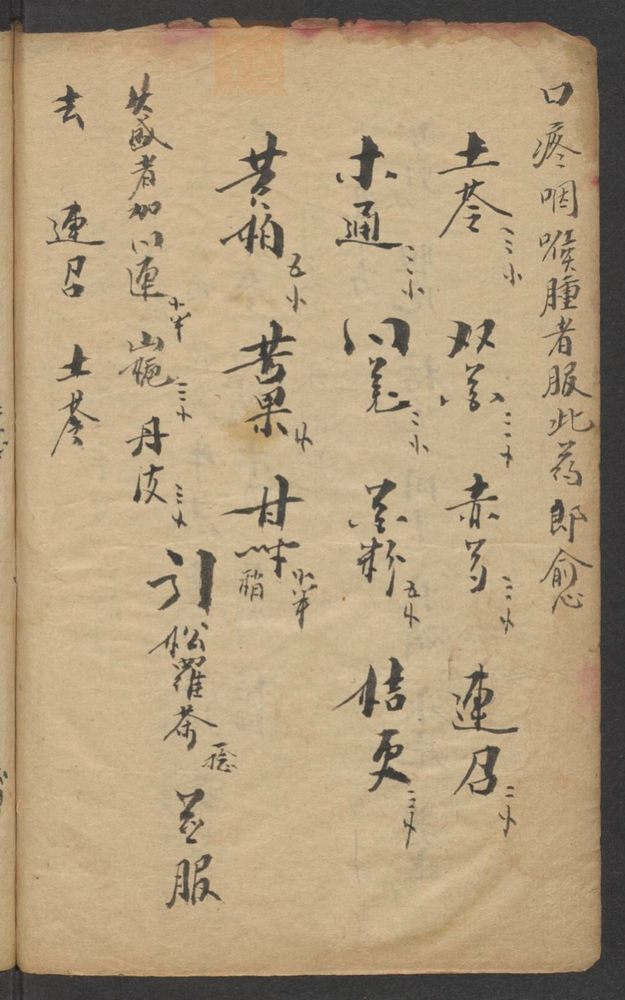 口疼咽喉腫者服此葯即愈
土苓三小 双花三小 赤芍三小 連召二小
木通三小 川芎三小 花粉五小 桔更三小
黄柏五小 苦果小 甘草稍小半
火盛者加川連小半 山梔三小 丹皮三小 引松羅茶捻 煎服
去 連召 土苓